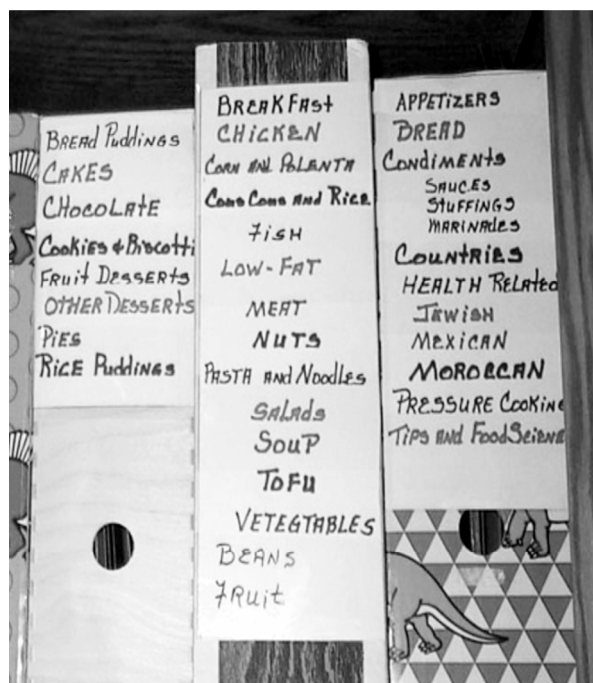 BREAD PuddiNGS
CAKES
CHOCOLAtE
Cookies & Biscotti
FRUit DESSERTS
OTHER DESSERtS
PiES
RiCE PuddiNGS
BREAKFAst
CHiCKEN
CORN ANd POLENTA
Cous Cous ANd RicE
FisH
LOW-FAT
MEAT
NUTS
PASTA ANd NoodLES
SALAds
SOUP
TOFU
VETEGTABLES
BEANS
FRUit
APPETiZERS
BREAD
CONDiMENtS
SAUCES
STUFFiNGS
MARiNAdES
COUNTRiES
HEALTH RELAtEd
JEWiSH
MEXiCAN
MOROCCAN
PRESSURE COOKiNG
TiPS ANd FoodSciENE